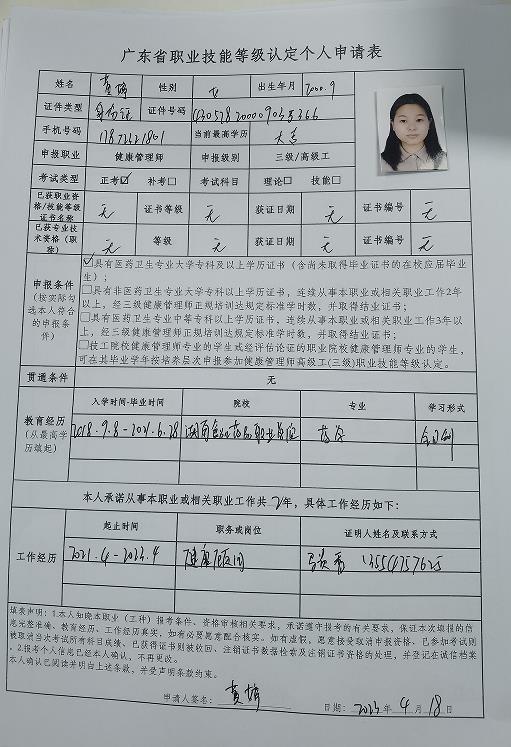 广东省职业技能等级认定个人申请表
姓名 黄婷 性别 女 出生年月 2000.9
证件类型 身份证 证件号码
手机号码 当前最高学历 大专
申报职业 健康管理师 申报级别 三级/高级工
考试类型 正考☑ 补考□ 考试科目 理论□ 技能□
已获职业资格/技能等级证书名称 无 证书等级 无 获证日期 无 证书编号 无
已获专业技术资格(职称) 无 等级 无 获证日期 无 证书编号 无
申报条件(按实际勾选本人符合的申报条件)
☑具有医药卫生专业大学专科及以上学历证书(含尚未取得毕业证书的在校应届毕业
生);
□具有非医药卫生专业大学专科及以上学历证书,连续从事本职业或相关职业工作2年
以上,经三级健康管理师正规培训达规定标准学时数,并取得结业证书;
□具有医药卫生专业中等专科以上学历证书,连续从事本职业或相关职业工作3年以
上,经三级健康管理师正规培训达规定标准学时数,并取得结业证书;
□技工院校健康管理师专业的学生或经评估论证的职业院校健康管理师专业的学生,
可在其毕业学年按培养层次申报参加健康管理师高级工(三级)职业技能等级认定。
贯通条件 无
教育经历(从最高学历填起)
入学时间-毕业时间 院校 专业 学习形式
2018.9.8-2021.6.28 湖南食品药品职业学院 药学 全日制
本人承诺从事本职业或相关职业工作共2年,具体工作经历如下:
工作经历
起止时间 职务或岗位 证明人姓名及联系方式
2021.4-2023.4 健康顾问 13554757625
填表声明:1.本人知晓本职业(工种)报考条件、资格审核相关要求,承诺遵守报考的有关要求,保证本次填报的信
息完整准确、教育经历、工作经历真实,如有必要愿意配合核实。如有虚假,愿意接受取消申报资格、已参加考试则
被取消当次考试所有科目成绩、已获得证书则被收回、注销证书数据检索及注销证书资格的处理,并登记在诚信档案
。2.报考个人信息已经本人确认,不再更改。
本人确认已阅读并明白上述条款,并受声明条款约束。
申请人签名:黄婷 日期:2023年4月18日